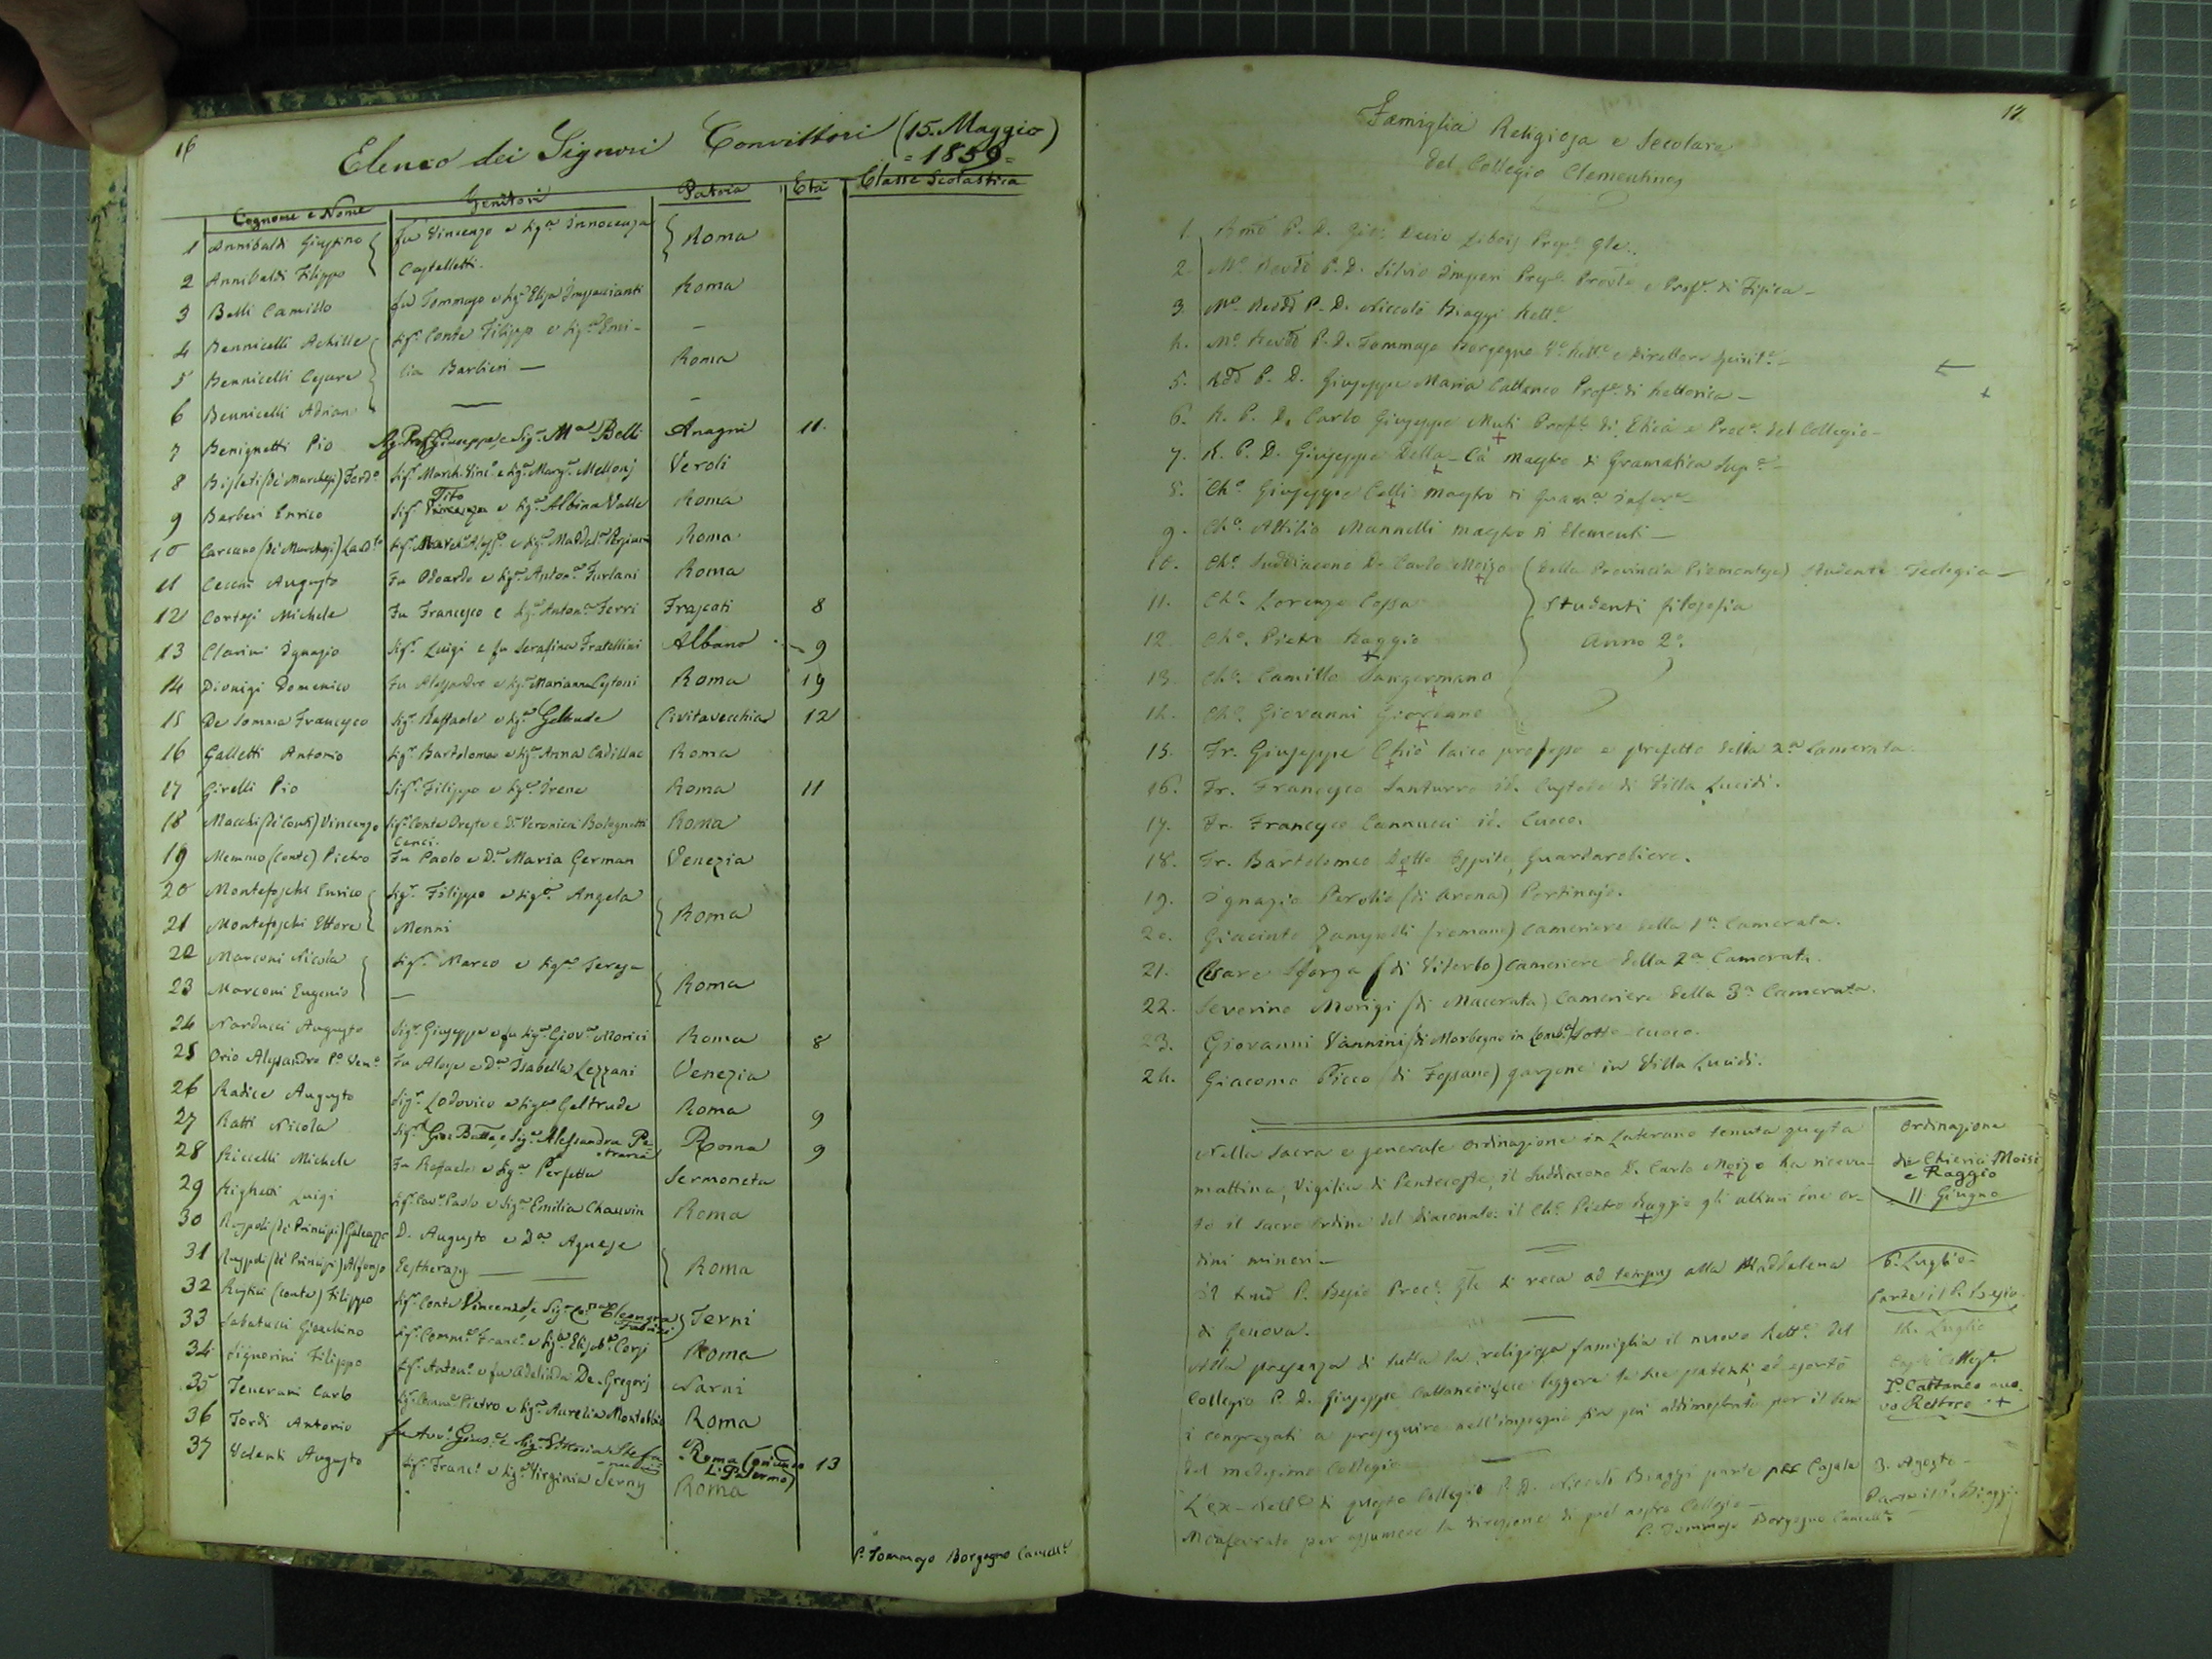 16
Elenco dei Signori Convittori (15. Maggio)
= 1859 =
Cognome e Nome Genitori Patria Età Classe Scolastica
1 Annibaldi Giustino fu Vincenzo e Sig.a Innocenza Roma
2 Annibaldi Filippo Castelletti.
3 Belli Camillo fu Tommaso e Sig.a Elisa Roma
4 Bennicelli Achille Sig.r Conte Filippo e Sig.a Emi- —
5 Bennicelli Cesare lia Barbieri — Roma
6 Bennicelli Adriano — —
7 Benignetti Pio Giuseppe e Sig.a M.a Belli Anagni 11.
8 Bisleti (de' Marchesi) Ferd.o Sig.r March. Vinc.o e Sig.a Marg.a Mellonj Veroli
9 Barberi Enrico Sig.r Tito e Sig.a Albina Valle Roma
10 Carcano (de' Marchesi) Roma
11 Cecchi Augusto Fu Odoardo e Sig.a Anton.a Furlani Roma
12 Cortesi Michele Fu Francesco e Sig.a Anton.a Ferri Frascati 8
13 Clarini Ignazio Sig.r Luigi e fu Serafina Fratellini Albano 9
14 Dionigi Domenico Fu Alessandro e Sig.a Marianna Roma 19
15 De Somma Francesco Sig.r Raffaele e Sig.a Geltrude Civitavecchia 12
16 Galletti Antonio Sig.r Bartolomeo e Sig.a Anna Cadillac Roma
17 Girelli Pio Sig.r Filippo e Sig.a Irene Roma 11
18 Macchi (de' Conti) Vincenzo Sig.r Conte Oreste e D.a Veronica Bolognetti Roma
Cenci.
19 Memmo (Conte) Pietro Fu Paolo e D.a Maria German Venezia
20 Montefoschi Enrico Sig.r Filippo e Sig.a Angela
21 Montefoschi Ettore Menni Roma
22 Marconi Nicola Sig.r Marco e Sig.a Teresa
23 Marconi Eugenio — Roma
24 Narducci Augusto Sig.r Giuseppe e fu Sig.a Giov.a Morici Roma 8
25 Orio Alessandro P.o Ven.o Fu Aloise e D.a Isabella Lezzani Venezia
26 Radice Augusto Sig.r Lodovico e Sig.a Geltrude Roma 9
27 Ratti Nicola Sig.r Gio: Batta e Sig.a Alessandra Roma 9
28 Riccelli Michele Fu Raffaele e Sig.a Perfetta Sermoneta
29 Righetti Luigi Sig.r Cav.e Paolo e Sig.a Emilia Chauvin Roma
30 Ruspoli (de' Principi) Galeazzo D. Augusto e D.a Agnese
31 Ruspoli (de' Principi) Alfonso Esztherazy — Roma
32 Rustici (Conte) Filippo Sig.r Conte Vincenzo, e Sig.a C. Eleonora Fabrizi Terni
33 Sabatucci Gioachino Sig.r Comm.e Franc.o e Sig.a Elisab.a Corsj Roma
34 Signorini Filippo Sig.r Anton.o e fu Adelaida De-Gregorj Narni
35 Tenerani Carlo Pietro e Sig.a Aurelia Montobbio Roma
36 Tordi Antonio fu Avv.o Gius.e e Sig.a Roma (oriundo di Palermo) 13
37 Valenti Augusto Sig.r Franc.o e Sig.a Virginia Serny Roma
P. Tommaso Borgogno Cancell.e
17.
Famiglia Religiosa e Secolare
del Collegio Clementino
1. Rmo P. D. Gio: Decio Libois Prep.o Gle.
2. M.o Revdo P. D. Silvio Imperi Prep.o Prov.le e Prof.e di Fisica —
3. M.o Revdo P. D. Niccolò Biaggi Rett.e
4. M.o Revdo P. D. Tommaso Borgogno V.e Rett.e e Direttore Spirit.e —
5. Rdo P. D. Giuseppe Maria Cattaneo Prof.e di Rettorica —
6. R. P. D. Carlo Giuseppe Muti Prof.e di Etica e Proc.e del Collegio —
7. R. P. D. Giuseppe Della-Cà maestro di Gramatica Sup.e —
8. Ch.o Giuseppe Celli maestro di Gram.a infer.e
9. Ch.o Attilio Mannelli maestro di Elementi —
10. Ch.o Suddiacono D. Carlo Moizo (della Provincia Piemontese) studente Teologia —
11. Ch.o Lorenzo Cossa studenti filosofia
12. Ch.o Pietro Raggio Anno 2.o
13. Ch.o Camillo Sangermano
14. Ch.o Giovanni Giordano
15. Fr. Giuseppe Chiò laico professo e prefetto della 2.a Camerata.
16. Fr. Francesco Santurro id. Custode di Villa Lucidi.
17. Fr. Francesco Cannucci id. Cuoco.
18. Fr. Bartolomeo Dotto Ospite, Guardarobiere.
19. Ignazio Perolio (di Arona) Portinajo.
20. Giacinto (romano) cameriere della 1.a Camerata.
21. Cesare Sforza (di Viterbo) cameriere della 2.a Camerata.
22. Severino Morigi (di Macerata) Cameriere della 3.a Camerata.
23. Giovanni Vannini (di Morbegno in Lomb.a) Sotto-cuoco.
24. Giacomo Picco (di Fossano) garzone in Villa Lucidi.
Nella sacra e generale ordinazione in Laterano tenuta questa
mattina, Vigilia di Pentecoste, il Suddiacono D. Carlo Moizo ha ricevu-
to il sacro Ordine del Diaconato: il Ch.o Pietro Raggio gli altri due or-
dini minori —
Ordinazione
de' Chierici Moisi
e Raggio
11 Giugno
Il Rmo P. Besio Proc.e Gle si reca ad tempus alla Maddalena
di Genova.
6. Luglio.
Parte il P. Besio
Alla presenza di tutta la religiosa famiglia il nuovo Rett.e del
Collegio P. D. Giuseppe Cattaneo fece leggere le sue patenti, ed esortò
i congregati a proseguire nell'impegno fin qui addimostrato per il bene
del medesimo Collegio.
14. Luglio
P. Cattaneo nuo-
vo Rettore +
L'ex-Rett.e di questo Collegio P. D. Niccolò Biaggi parte per Casale
Monferrato per assumere la direzione di quel nostro Collegio —
3. Agosto —
Parte il P. Biaggi
P. Tommaso Borgogno Cancell.e